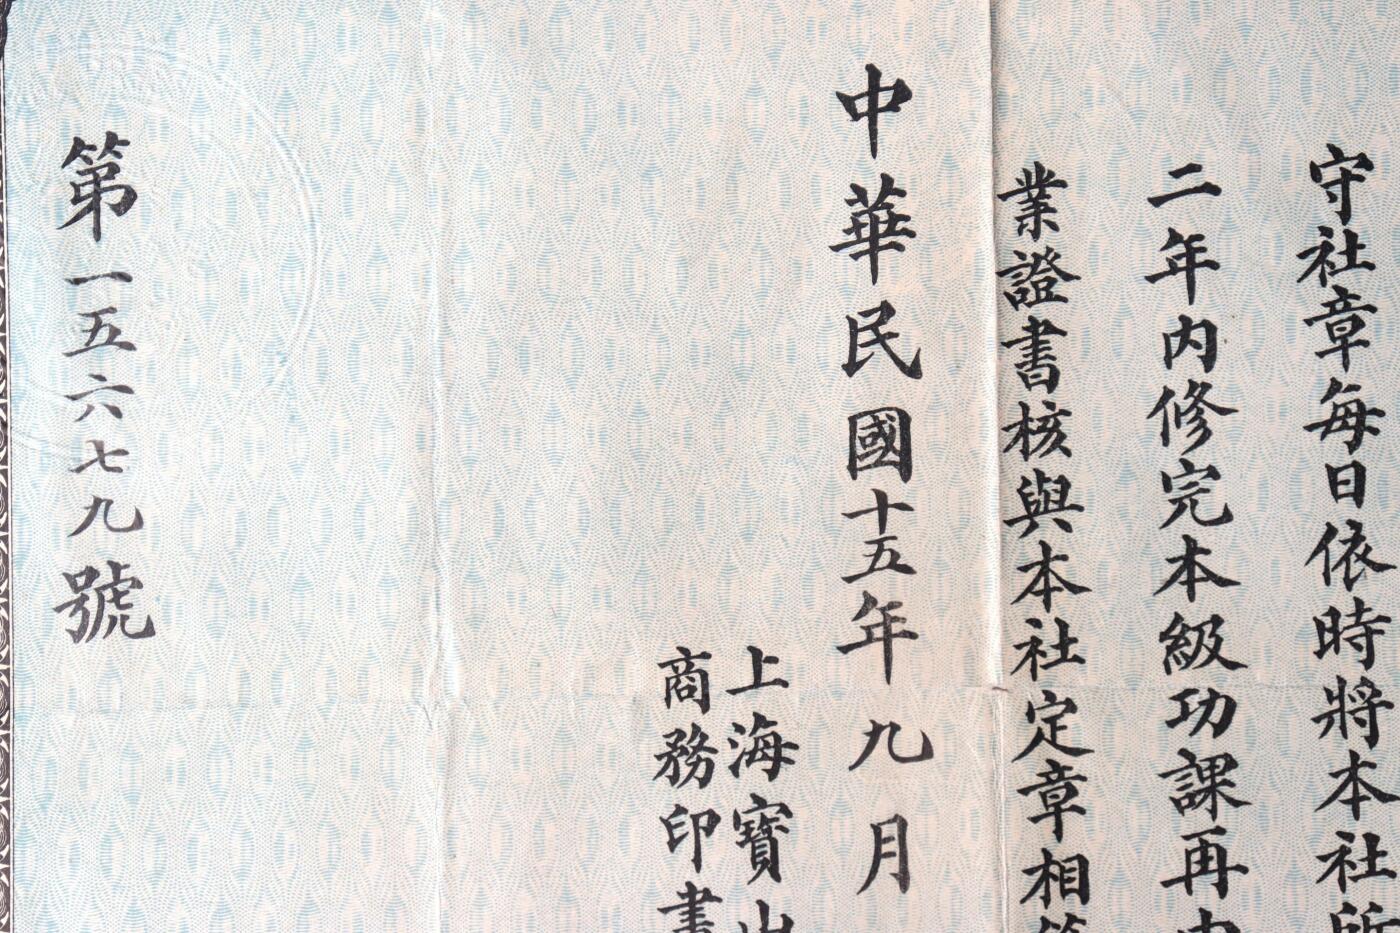 守社章每日依時將本社所
二年内修完本級功課再由
業證書核與本社定章相符
中華民國十五年九月
上海寶山
商務印書
第一五六七九號